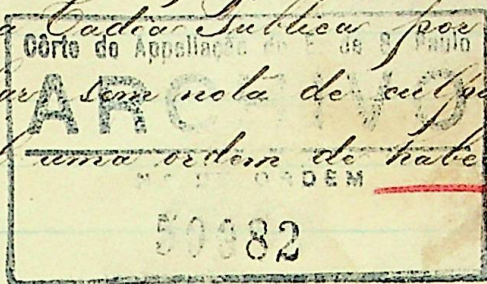 a Cadêa Publica por
Côrte de Appellação do E. de S. Paulo
ar sem nota de culpa
ARCHIVO
uma ordem de habe
Nº DE ORDEM
50982